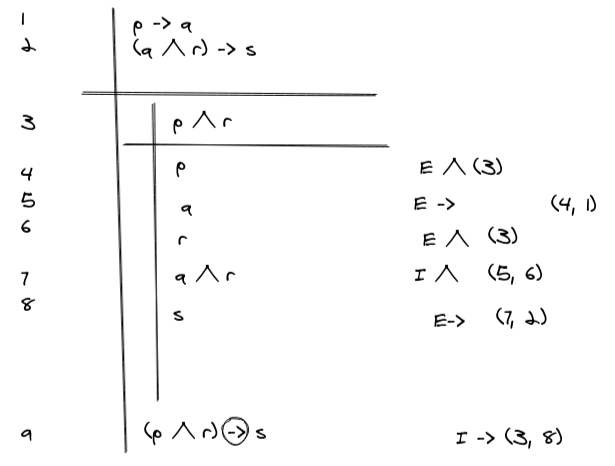 1 p -> q
2 (q ∧ r) -> s
3 p ∧ r
4 p E ∧ (3)
5 q E -> (4, 1)
6 r E ∧ (3)
7 q ∧ r I ∧ (5, 6)
8 s E-> (7, 2)
9 (p ∧ r) -> s I -> (3, 8)